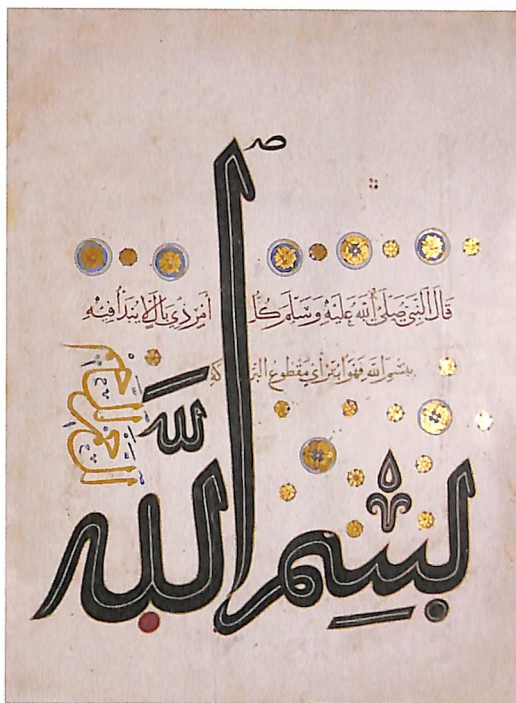 قَالَ النَّبِيُّ صَلَّى اللهُ عَلَيْهِ وَسَلَّمَ كُلُّ أَمْرٍ ذِي بَالٍ لَا يُبْدَأُ فِيهِ
بِبِسْمِ اللهِ فَهُوَ أَبْتَرُ أَيْ مَقْطُوعُ الْبَرَكَةِ
بِسْمِ اللَّهِ
الرَّحْمٰنِ الرَّحِيمِ